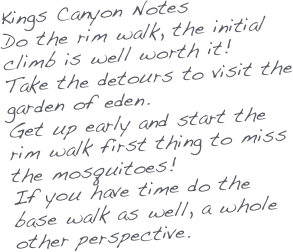 Kings Canyon Notes
Do the rim walk, the initial
climb is well worth it!
Take the detours to visit the
garden of eden.
Get up early and start the
rim walk first thing to miss
the mosquitoes!
If you have time do the
base walk as well, a whole
other perspective.